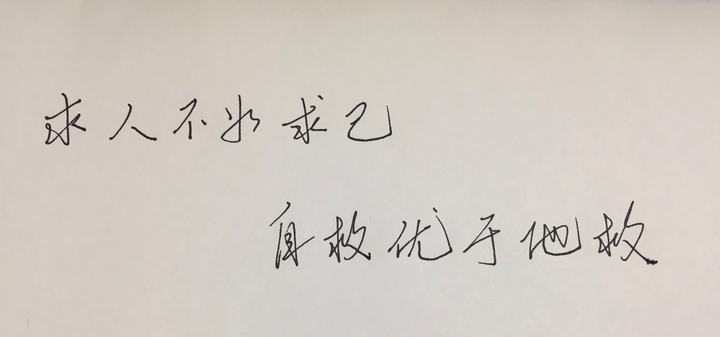 求人不如求己
自救优于他救